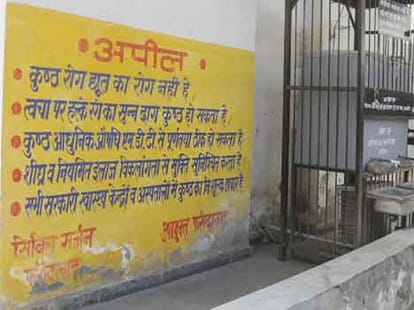 • अपील •
• कुष्ठ रोग छूत का रोग नहीं है
• त्वचा पर हल्के रंग का सुन्न दाग कुष्ठ हो सकता है
• कुष्ठ आधुनिक औषधि एम डी टी से पूर्णतया ठीक हो सकता है
• शीघ्र व नियमित इलाज विकलांगता से मुक्ति सुनिश्चित करता है
• सभी सरकारी स्वास्थ्य केन्द्रों व अस्पतालों में कुष्ठ का निःशुल्क उपचार है
सिविल सर्जन